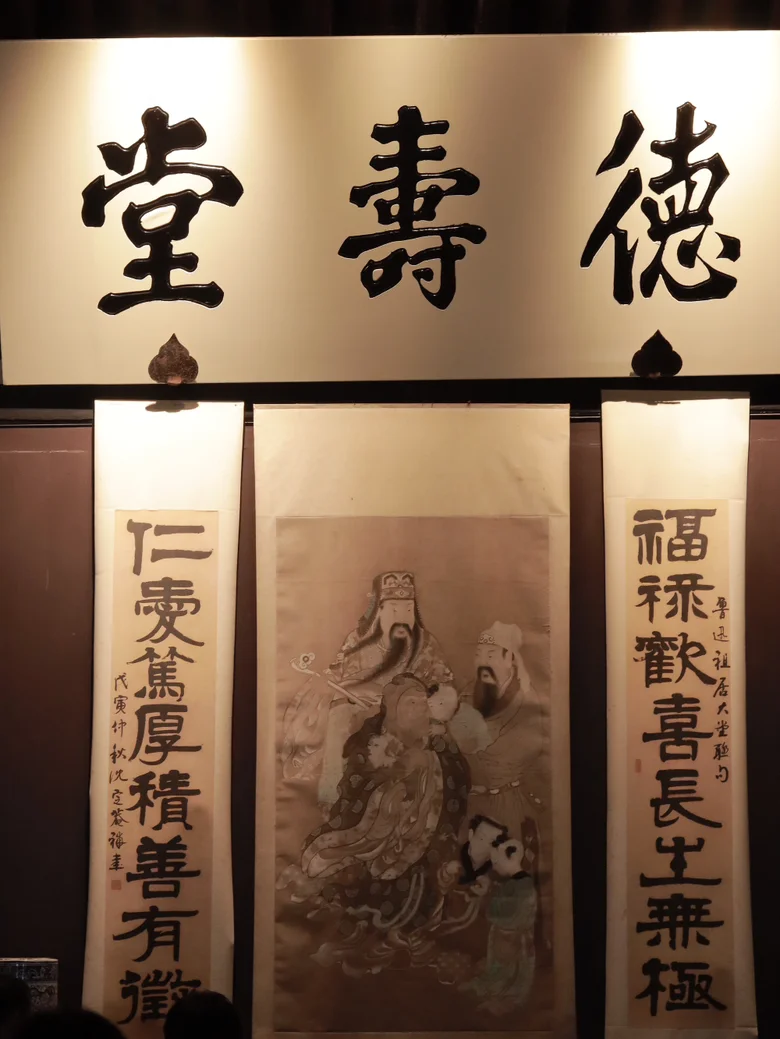 德壽堂
福祿歡喜長生無極
魯迅祖居大堂聯句
仁愛篤厚積善有徵
戊寅仲秋沈定菴書